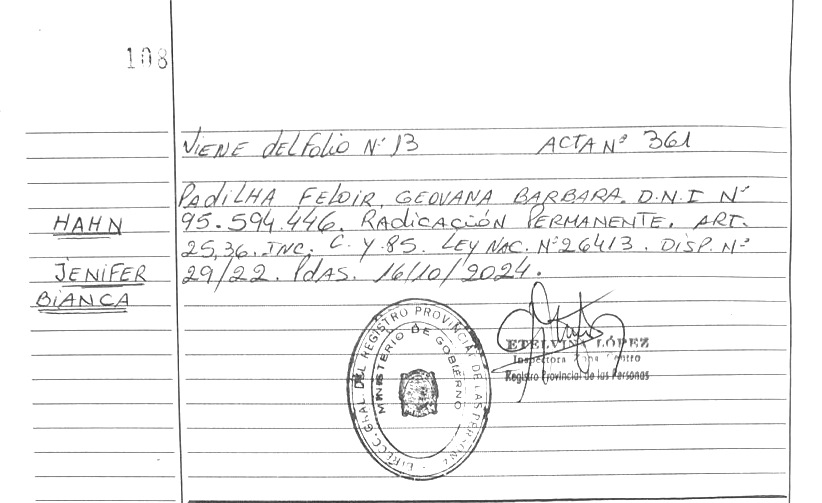 108
VIENE DEL FOLIO Nº 13 ACTA Nº 361
PADILHA FELOIR, GEOVANA BARBARA. D.N.I Nº
HAHN
95.594.446. RADICACIÓN PERMANENTE. ART.
25,36. INC. C. Y. 85. LEY NAC. Nº 26413. DISP. Nº
JENIFER
29/22. Pdas. 16/10/2024.
BIANCA
DIRECC. GRAL. DEL REGISTRO PROVINCIAL DE LAS PERSONAS
MINISTERIO DE GOBIERNO
ETELVINA LÓPEZ
Inspectora Zona Centro
Registro Provincial de las Personas